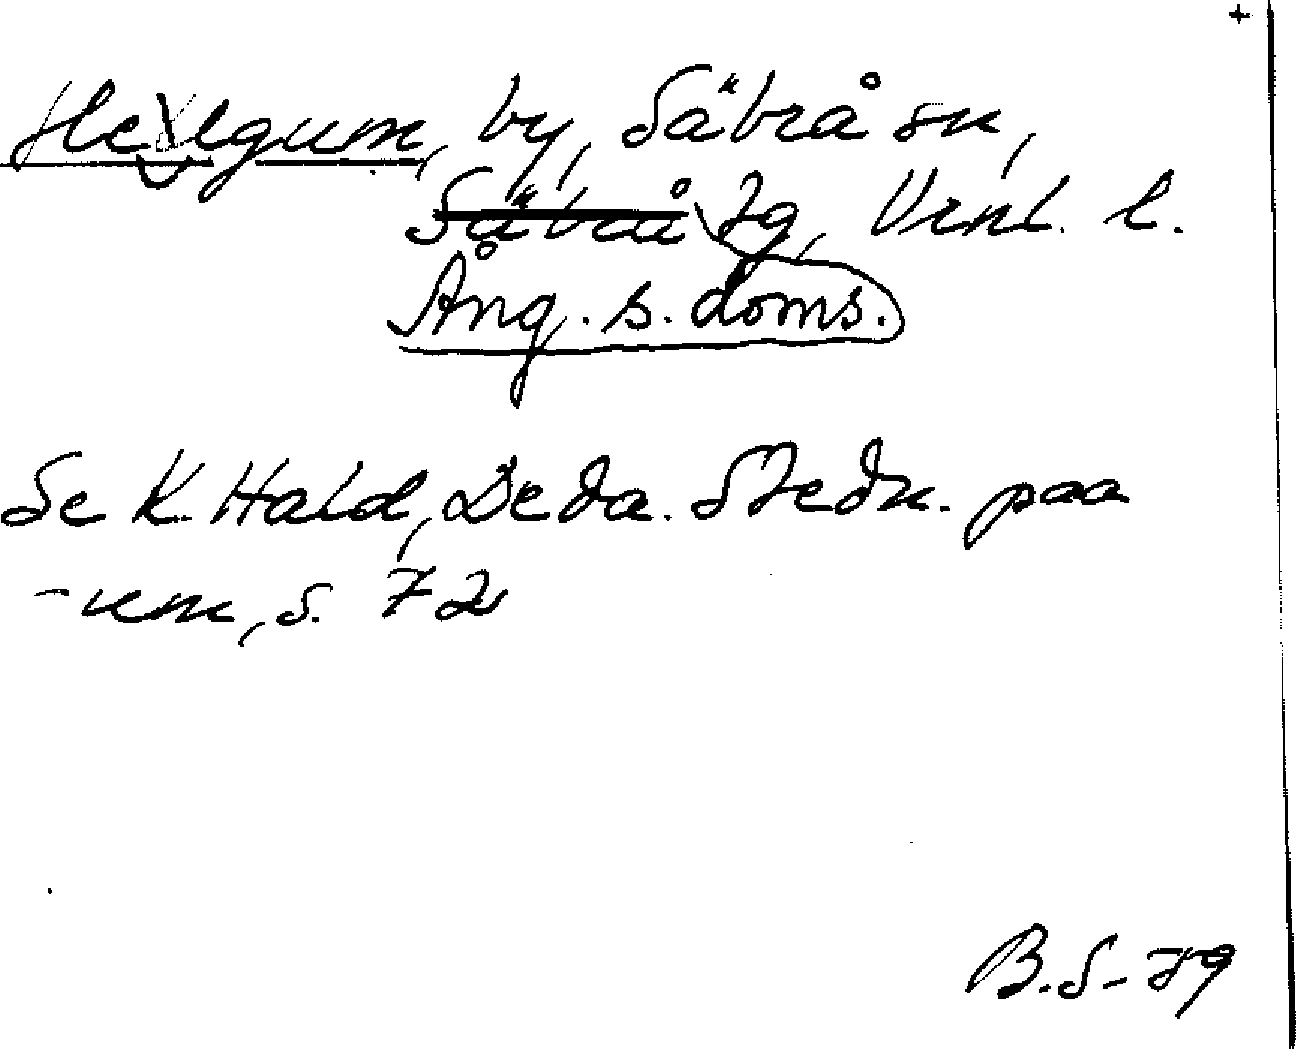 +
Helgum, by, Säbrå sn,
Säbrå tg, Vrnl. l.
Ång. s. doms.
Se K. Hald, De da. Stedn. paa
-um, s. 72
B.S-79